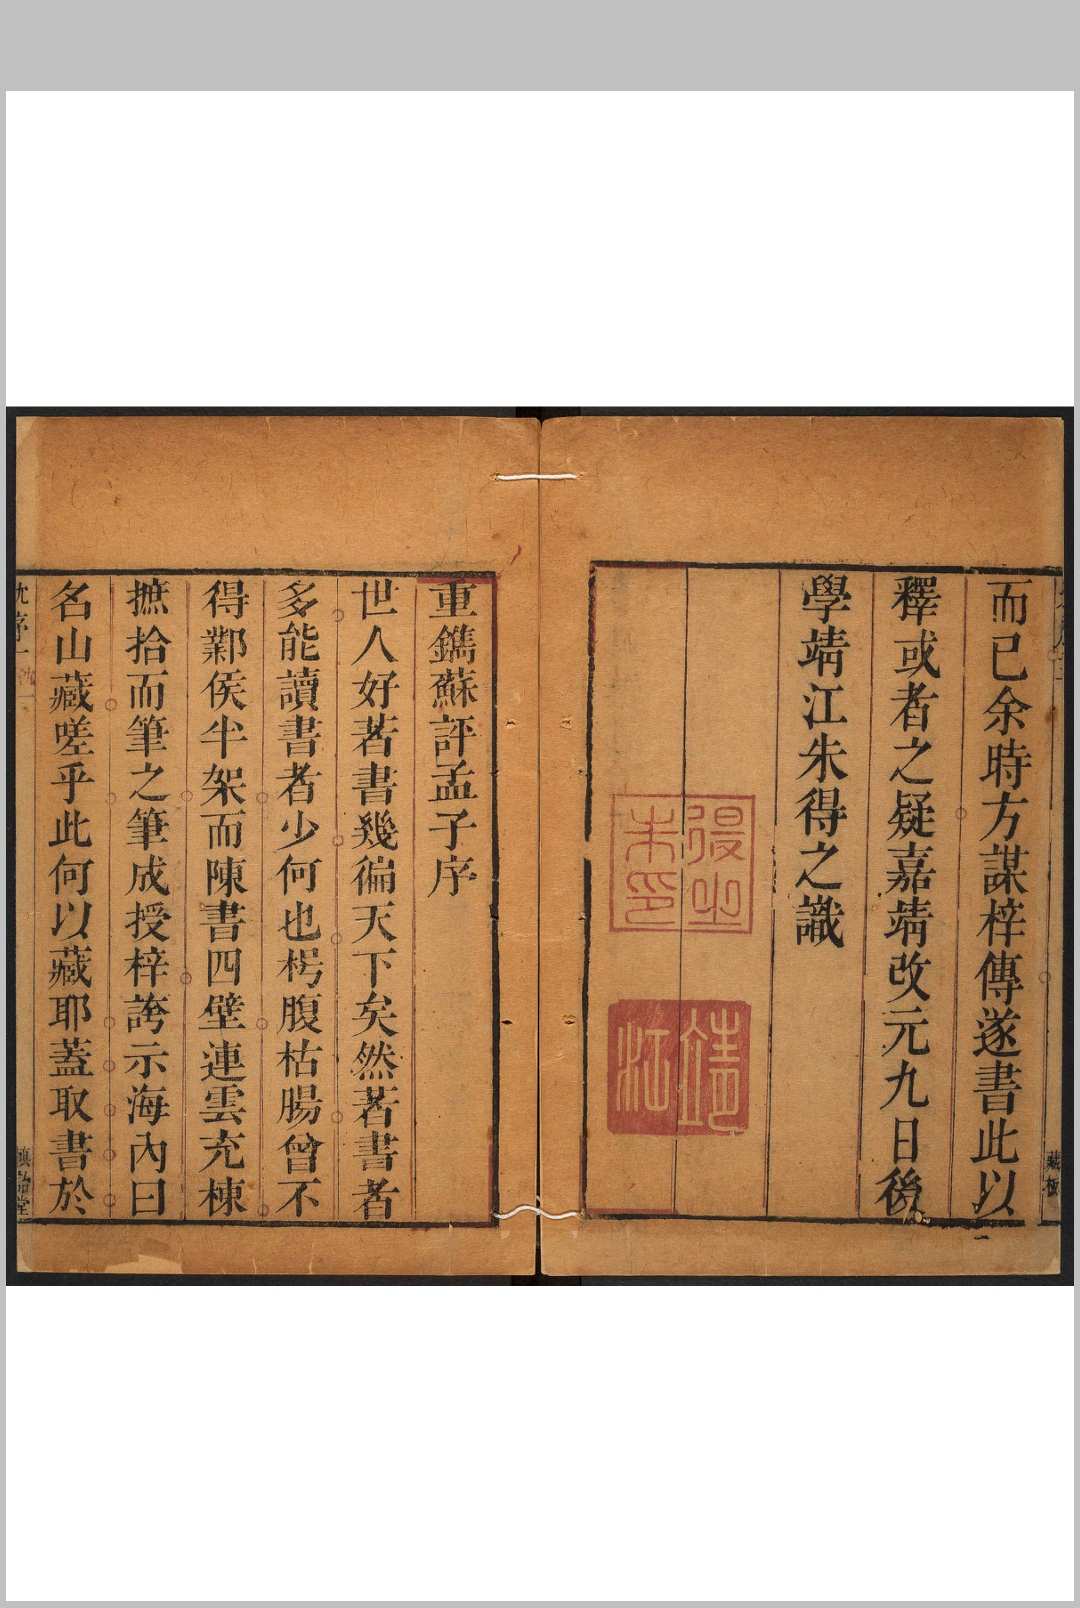 而已余時方謀梓傳遂書此以
釋或者之疑嘉靖改元九日後
學靖江朱得之識
靖江
藏板
重鐫蘇評孟子序
世人好著書幾徧天下矣然著書者
多能讀書者少何也枵腹枯腸曾不
得鄴侯半架而陳書四壁連雲充棟
摭拾而筆之筆成授梓誇示海內曰
名山藏嗟乎此何以藏耶蓋取書於
沈序一